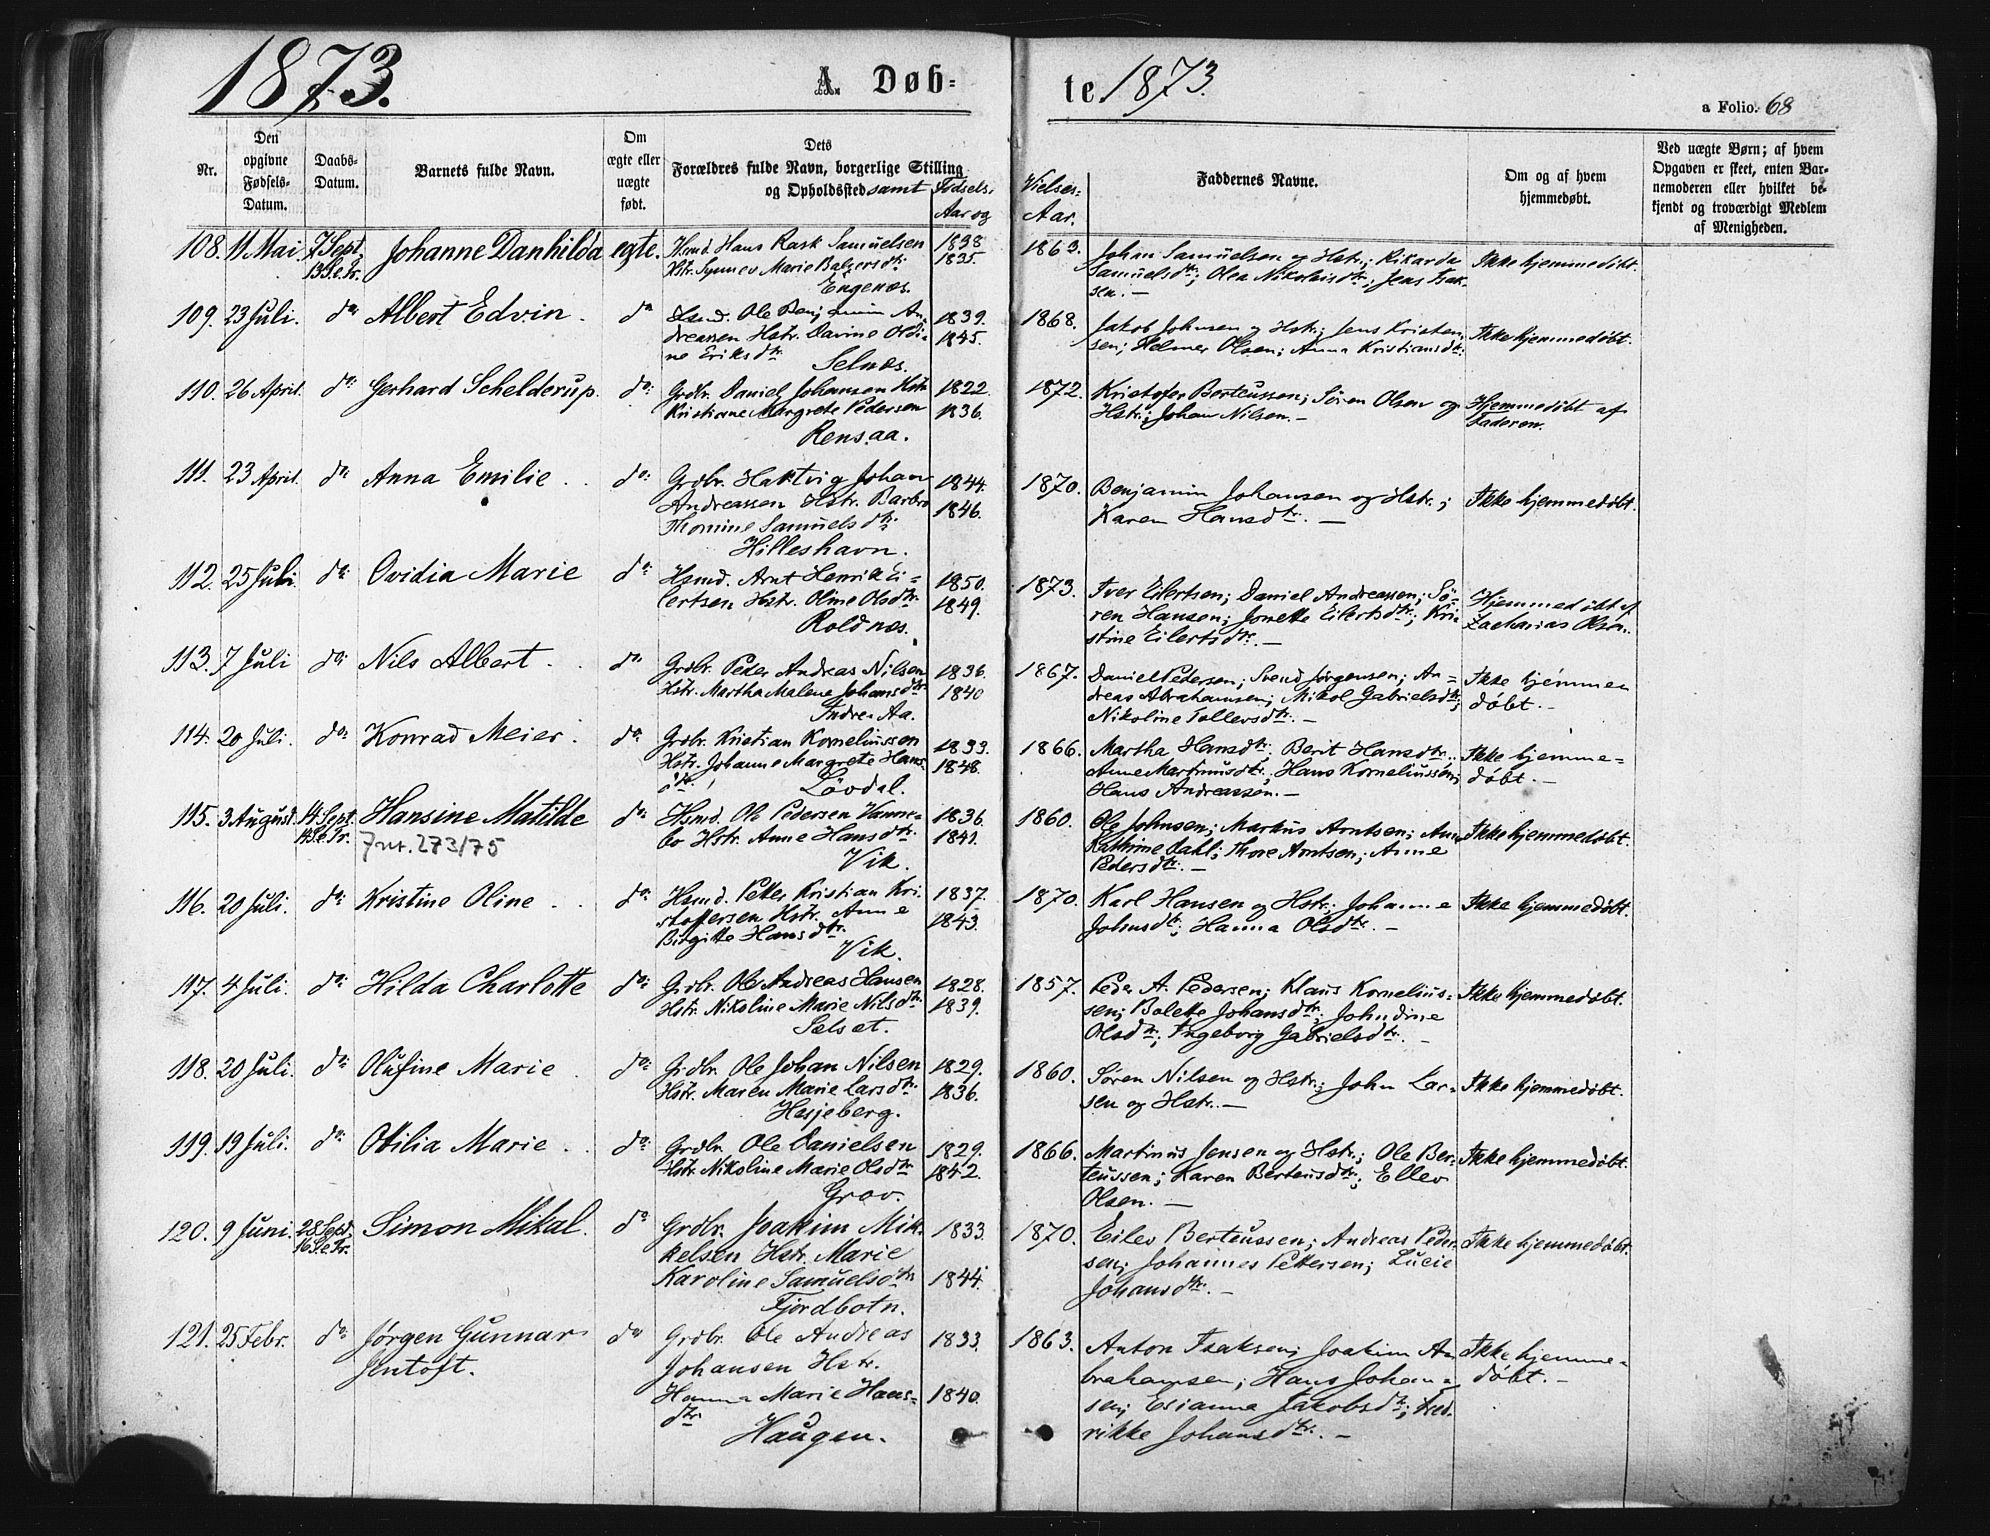 1873.
A. Døb=
te 1873.
a Folio. 68
Nr.
Den opgivne Fødsels-Datum.
Daabs-Datum.
Barnets fulde Navn.
Om ægte eller uægte født.
Dets Forældres fulde Navn, borgerlige Stilling og Opholdssted samt Fødsels-Aar og
Vielses-Aar.
Faddernes Navne.
Om og af hvem hjemmedøbt.
Ved uægte Børn; af hvem Opgaven er skeet, enten Barnemoderen eller hvilket bekjendt og troværdigt Medlem af Menigheden.
108. 11 Mai 7 Sept. Johanne Danhilda egte. Hsmd. Hans Rask Samuelsen 1838 1863. Johan Samuelsen og Hstr; Rikarda Ikke hjemmedøbt.
13 S.e.Tr. Hstr. Synnev Marie Balzersdtr 1835. Samuelsdtr; Olea Nikolaisdtr; Jens Isak-
Engenæs. sen. —
109. 23 Juli. do Albert Edvin. do Hsmd. Ole Benjamin An- 1839. 1868. Jakob Johnsen og Hstr; Jens Kristen- Ikke hjemmedøbt.
dreassen Hstr. Davine Oldi- 1845. sen; Helmer Olsen; Anna Kristiansdtr.
ne Eriksdtr
Selnæs.
110. 26 April. do Gerhard Schelderup. do Grdbr. Daniel Johansen Hstr 1822. 1872. Kristofer Berteussen; Sören Olsen og Hjemmedøbt af
Kristiane Margrete Pedersen 1836. Hstr; Johan Nilsen. — Faderen.
Rensaa.
111. 23 April. do Anna Emilie. do Grdbr. Hartvig Johan 1844. 1870. Benjamin Johansen og Hstr.; Ikke hjemmedøbt.
Andreassen Hstr. Barbro 1846. Karen Hansdtr. —
Thomine Samuelsdtr.
Hilleshavn.
112. 25 Juli. do Ovidia Marie do Hsmd. Arnt Henrik Ei- 1850. 1873. Iver Eilertsen; Daniel Andreassen; Sö- Hjemmedøbt af
lertsen Hstr. Oline Olsdtr. 1849. ren Hansen; Jonette Eilertsdtr; Kri- Zacharias Olsen.
Roldnæs. stine Eilertsdtr. —
113. 7 Juli do Nils Albert. do Grdbr. Peder Andreas Nilsen 1836. 1867. Daniel Pedersen; Svend Jørgensen; An- Ikke hjemme
Hstr. Martha Malene Johansdtr 1840 dreas Abrahamsen; Mikol Gabrielsdtr; døbt. —
Indre Aa. Nikoline Tollevsdtr. —
114. 20 Juli. do Konrad Meier. do Grdbr. Kristian Korneliussen 1833. 1866. Martha Hansdtr; Berit Hansdtr; Ikke hjemme-
Hstr. Johanne Margrete Hans- 1848. Anne Martinusdtr; Hans Korneliussen; døbt. —
dtr. Lövdal. Hans Andreassen. —
115. 3 August. 14 Sept. Hansine Matilde do Hsmd. Ole Pedersen Vanne- 1836. 1860. Ole Johnsen; Markus Arntsen; Anne Ikke hjemmedøbt.
14 S.e.Tr. Jnr. 273/75 bo Hstr. Anne Hansdtr. 1841. Kathrine Dahl; Thore Arntsen; Anne
Vik. Pedersdtr. —
116. 20 Juli. do Kristine Oline. do Hsmd. Petter Kristian Kri- 1837. 1870. Karl Hansen og Hstr; Johanne Ikke hjemmedøbt.
stoffersen Hstr. Anne 1843. Johnsdtr; Hanna Olsdtr. —
Birgitte Hansdtr.
Vik.
117. 4 Juli. do Hilda Charlotte do Grdbr. Ole Andreas Hansen 1828. 1857. Peder A. Pedersen; Klaus Kornelius- Ikke hjemmedøbt.
Hstr. Nikoline Marie Nilsdtr. 1839. sen; Bolette Johansdtr; Johndine
Selset. Olsdtr; Ingeborg Gabrielsdtr. —
118. 20 Juli. do Olufine Marie do Grdbr. Ole Johan Nilsen 1829. 1860. Søren Nilsen og Hstr; John Lar- Ikke hjemmedøbt.
Hstr. Maren Marie Larsdtr 1836. sen og Hstr. —
Hesjeberg.
119. 19 Juli. do Otilia Marie. do Grdbr. Ole Danielsen 1829. 1866. Martinus Jensen og Hstr; Ole Ber- Ikke hjemmedøbt.
Hstr. Nikoline Marie Olsdtr 1842. teussen; Karen Berteusdtr; Ellev
Grov. Olsen. —
120. 9 Juni. 28 Sept. Simon Mikal. do Grdbr. Joakim Mik- 1833. 1870. Eilev Berteussen; Andreas Peder- Ikke hjemmedøbt.
16 S.e.Tr. kelsen Hstr. Marie sen; Johannes Pettersen; Lucie
Karoline Samuelsdtr 1844. Johansdtr. —
Fjordbotn.
121. 25 Febr. do Jørgen Gunnar do Grdbr. Ole Andreas 1833. 1863. Anton Isaksen; Joakim A- Ikke hjemme-
Jentoft. Johansen Hstr. brahamsen; Hans Johan- døbt. —
Hanna Marie Hans- 1840. sen; Esianna Jakobsdtr; Fred-
dtr rikke Johansdtr. —
Haugen.